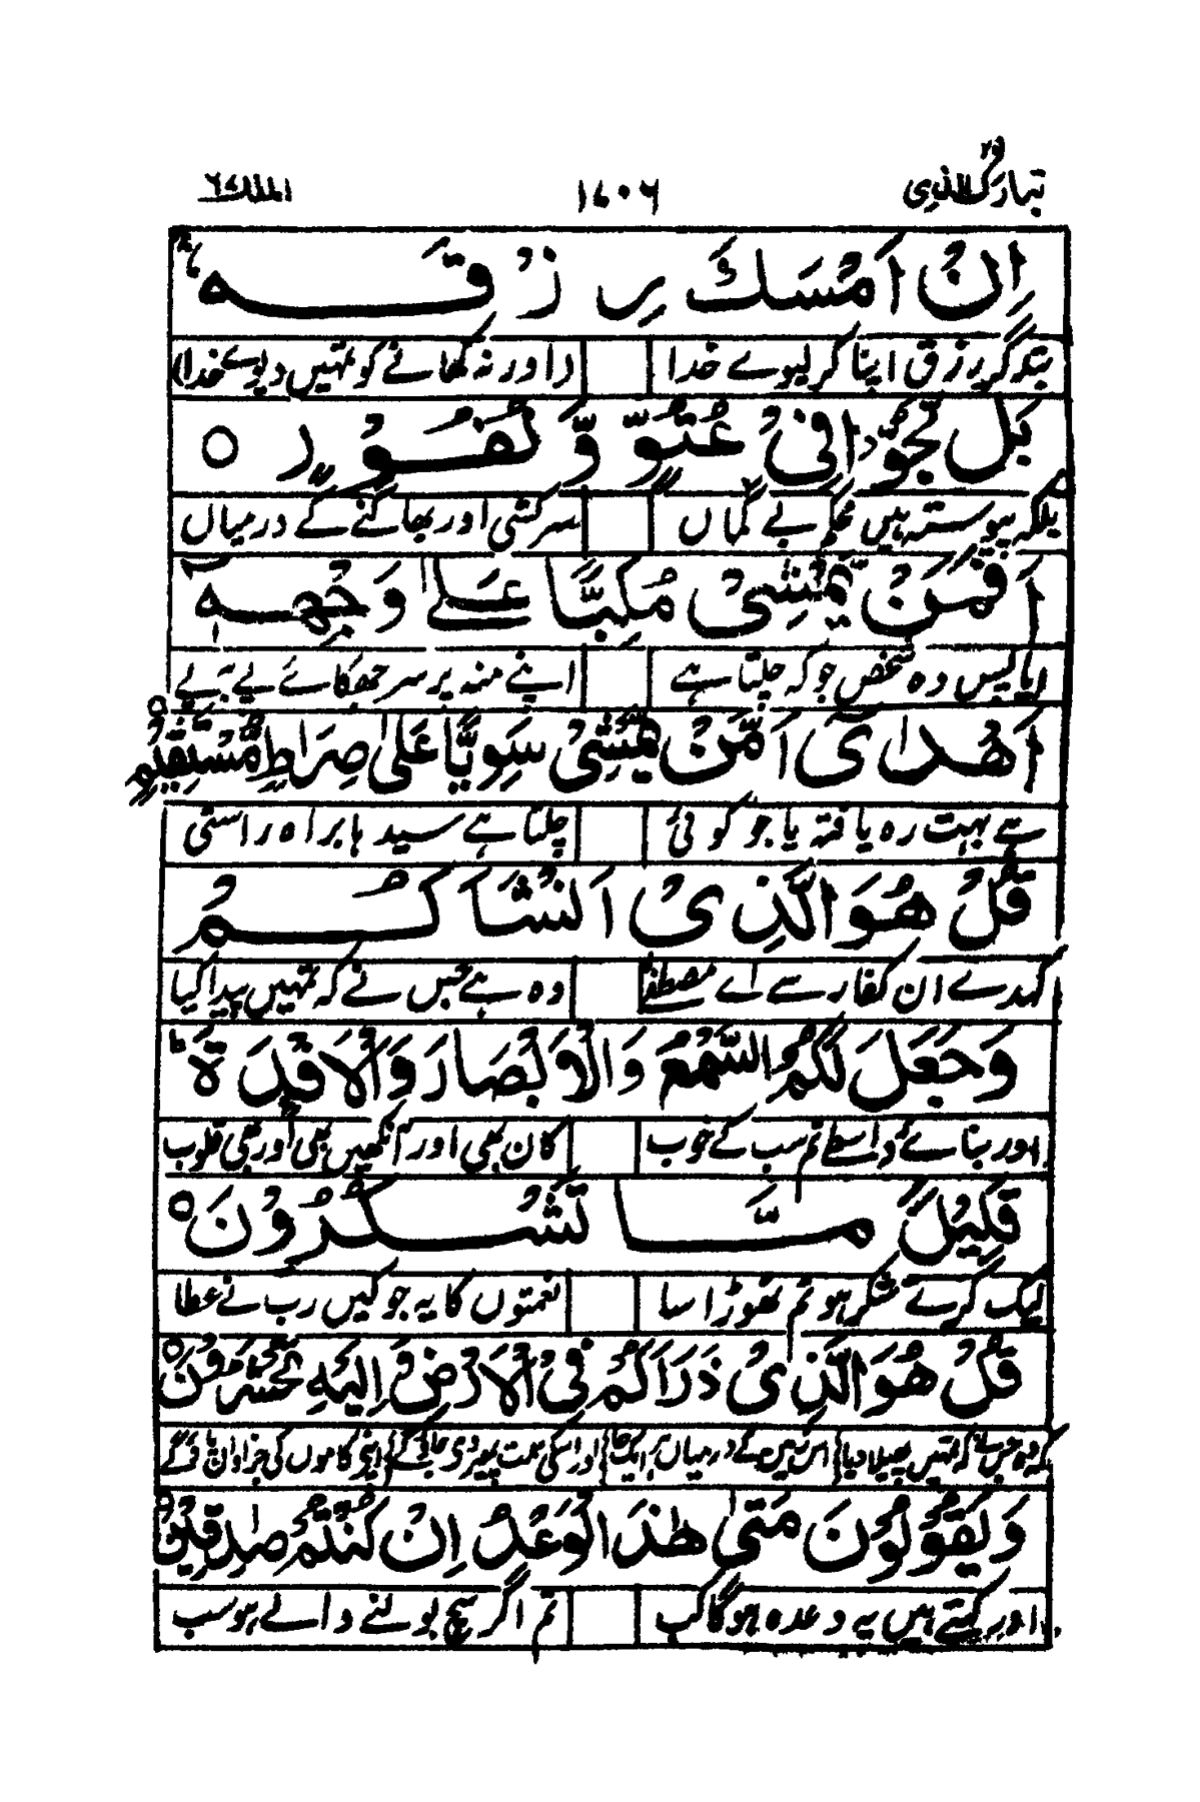 تبارك الذی ٢٩ ١٤٠٦ الملك ٦٧
اِنْ اَمْسَكَ رِزْقَهٗ
بند گر رزق اپنا کر لیوے خدا (اور نہ کھانے کو تمہیں دیوے خدا)
بَلْ لَّجُّوْا فِیْ عُتُوٍّ وَّ نُفُوْرٍ ○
بلکہ پیوستہ ہیں محکم بے گماں سرکشی اور بھاگنے کے درمیاں
اَفَمَنْ یَّمْشِیْ مُكِبًّا عَلٰى وَجْهِهٖۤ
ایا پس وہ شخص جو کہ چلتا ہے اپنے منہ پر سر جھکائے
اَهْدٰۤى اَمَّنْ یَّمْشِیْ سَوِیًّا عَلٰى صِرَاطٍ مُّسْتَقِیْمٍ ○
ہے بہت رہ یافتہ یا جو کوئی چلتا ہے سیدھا براہ راستی
قُلْ هُوَ الَّذِیْۤ اَنْشَاَكُمْ
کہدے ان کفار سے اے مصطفٰے وہ ہے جس نے کہ تمہیں پیدا کیا
وَ جَعَلَ لَكُمُ السَّمْعَ وَ الْاَبْصَارَ وَ الْاَفْـِٕدَةَ ؕ
اور بنائے واسطے تم سب کے خوب کان بھی اور آنکھیں بھی اور بھی قلوب
قَلِیْلًا مَّا تَشْكُرُوْنَ ○
لیک کرتے شکر ہو تم تھوڑا سا نعمتوں کا یہ جو کیں رب نے عطا
قُلْ هُوَ الَّذِیْ ذَرَاَكُمْ فِی الْاَرْضِ وَ اِلَیْهِ تُحْشَرُوْنَ ○
کہ وہ جس نے کہ تمہیں پھیلا دیا اس زمیں کے درمیاں ہر ایک جا اور اسکی سمت پھیرے جاؤگے اپنے کاموں کی جزا واں پاؤگے
وَ یَقُوْلُوْنَ مَتٰى هٰذَا الْوَعْدُ اِنْ كُنْتُمْ صٰدِقِیْنَ ○
اور کہتے ہیں یہ وعدہ ہوگا کب تم اگر سچ بولنے والے ہو سب